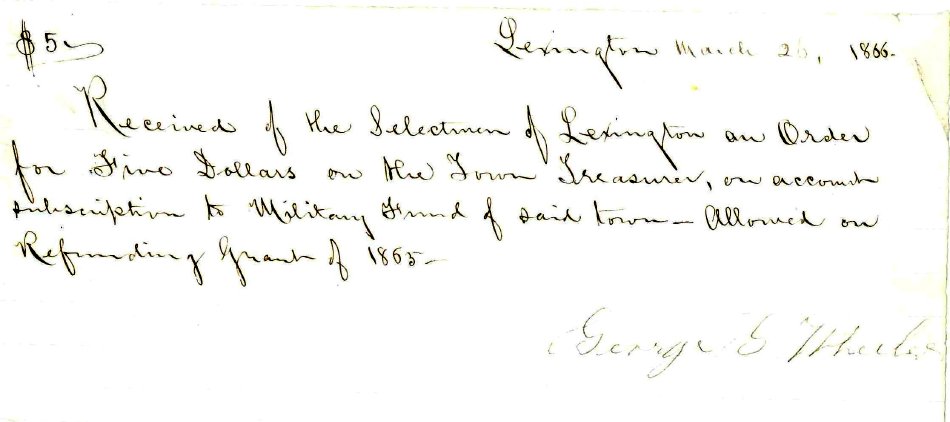 $5 Lexington March 26, 1866.
Received of the Selectmen of Lexington an Order
for Five Dollars on the Town Treasurer, on account
subscription to Military Fund of said town— Allowed on
Refunding Grant of 1865—
George E Wheeler